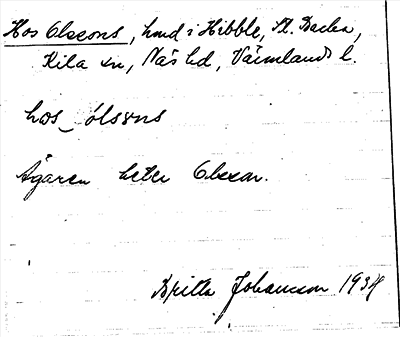 Hos Olssons, hmd i Hibble, St. Backa,
Kila sn, Näs hd, Värmlands l.
hos_ ólsons
Ägaren heter Olsson.
Britta Johansson 1934